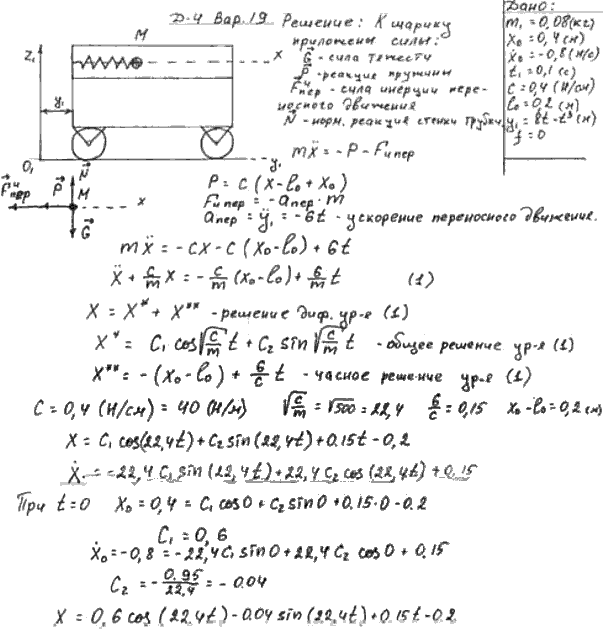 Д-4 Вар. 19 Решение: К шарику
приложены силы:
G̅ - сила тяжести
P̅ - реакция пружины
F̅ᵘпер - сила инерции пере-
носного движения
N̅ - норм. реакция стенки трубки.
mẍ = -P - Fипер
Дано:
m₁ = 0,08 (кг)
x₀ = 0,4 (м)
ẋ₀ = -0,8 (м/с)
t₁ = 0,1 (с)
c = 0,4 (Н/см)
l₀ = 0,2 (м)
y₁ = 8t - t³
f = 0
z₁
M
x
y₁
O₁
y₁
N̅
F̅ᵘпер P̅ M x
G̅
P = c (x - l₀ + x₀)
Fипер = -aпер · m
aпер = ÿ₁ = -6t - ускорение переносного движения.
mẍ = -cx - c (x₀ - l₀) + 6t
ẍ + c/m x = - c/m (x₀ - l₀) + 6/m t (1)
x = x* + x** - решение диф. ур-я (1)
x* = C₁ cos √(c/m) t + C₂ sin √(c/m) t - общее решение ур-я (1)
x** = - (x₀ - l₀) + 6/c t - часное решение ур-я (1)
c = 0,4 (Н/см) = 40 (Н/м) √(c/m) = √500 = 22,4 6/c = 0,15 x₀ - l₀ = 0,2 (м)
x = C₁ cos(22,4t) + C₂ sin (22,4t) + 0.15t - 0,2
ẋ = -22,4 C₁ sin (22,4t) + 22,4 C₂ cos (22,4t) + 0,15
При t = 0 x₀ = 0,4 = C₁ cos 0 + C₂ sin 0 + 0.15·0 - 0.2
C₁ = 0,6
ẋ₀ = -0,8 = -22,4 C₁ sin 0 + 22,4 C₂ cos 0 + 0.15
C₂ = - 0.95/22,4 = - 0.04
x = 0,6 cos (22,4t) - 0.04 sin (22,4t) + 0.15t - 0.2